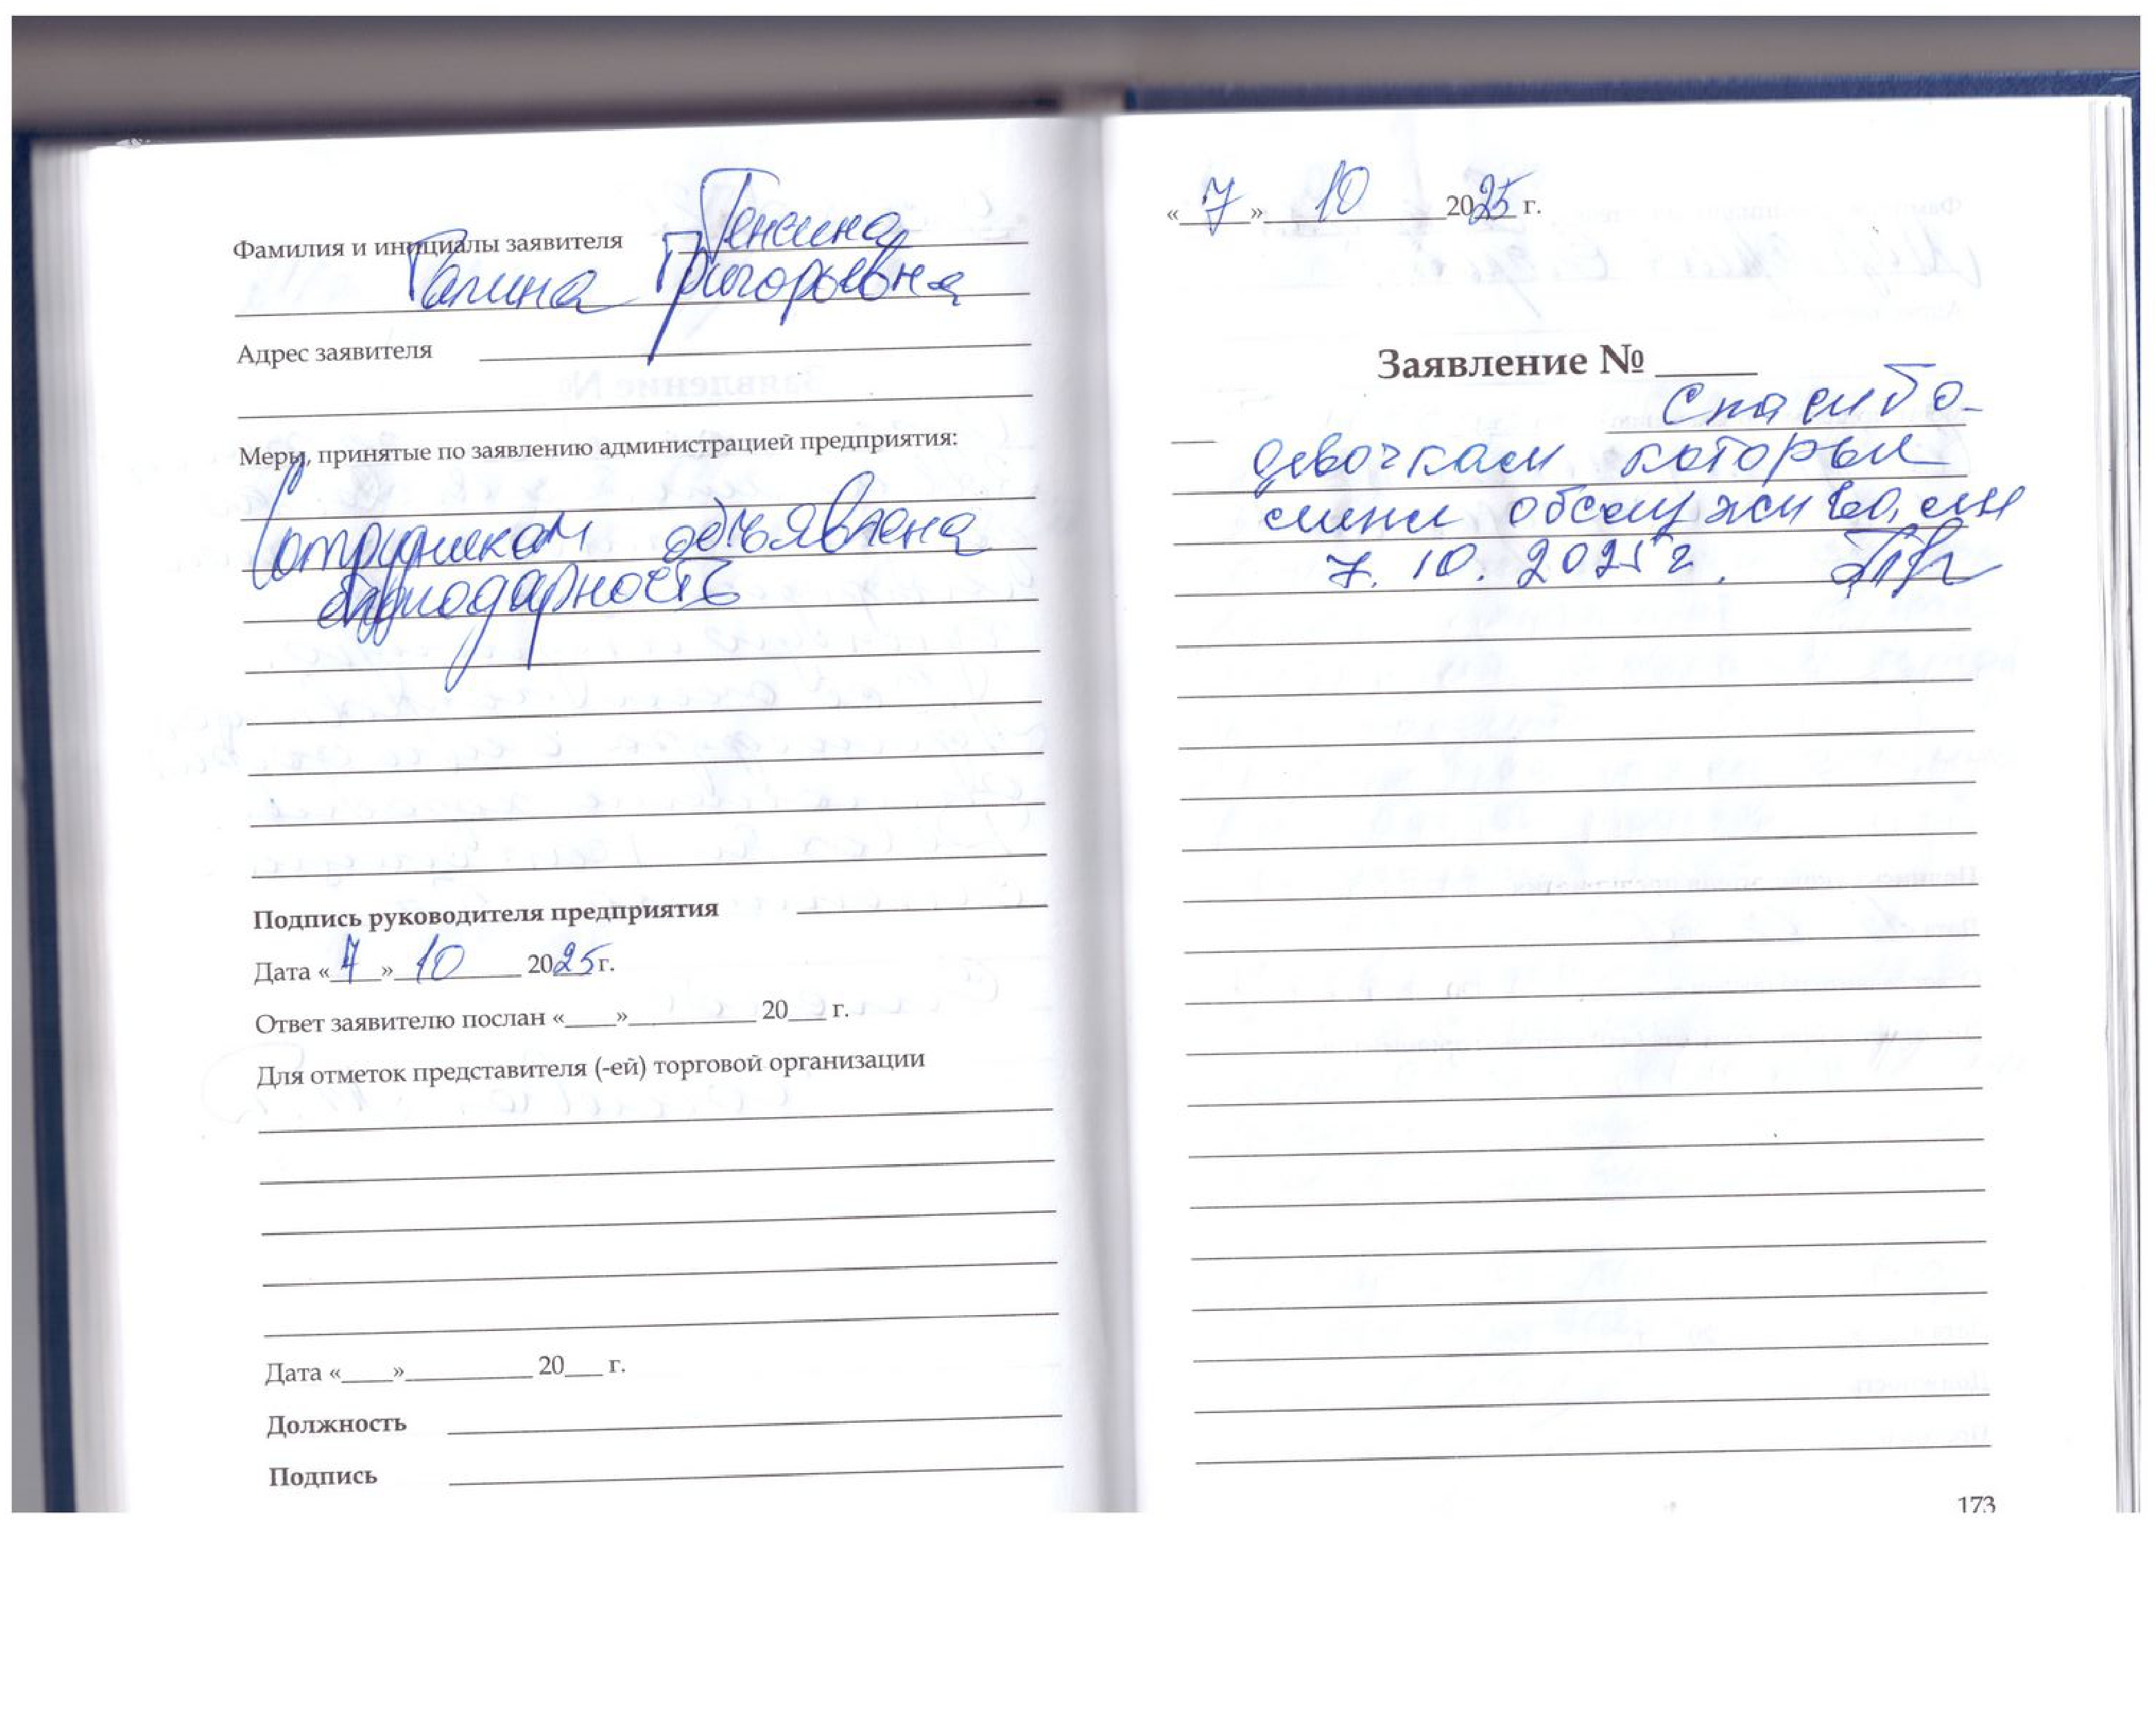 Фамилия и инициалы заявителя Генсина
Галина Григорьевна
Адрес заявителя
Меры, принятые по заявлению администрацией предприятия:
Сотрудникам объявлена
благодарность
Подпись руководителя предприятия
Дата «7» 10 2025 г.
Ответ заявителю послан «____»__________ 20___ г.
Для отметок представителя (-ей) торговой организации
Дата «____»__________ 20___ г.
Должность
Подпись
«7» 10 2025 г.
Заявление № _____
Спасибо
девочкам которые
меня обслуживали
7. 10. 2025 г.
173